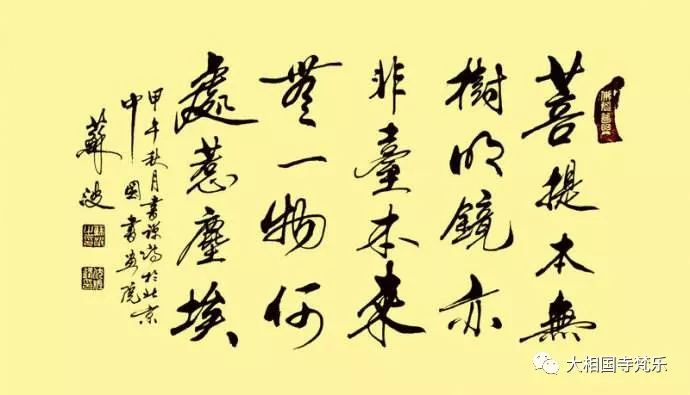 菩提本無
樹明鏡亦
非臺本來
無一物何
處惹塵埃
甲午秋月書禪詩於北京
中國書畫院
蘇波
大相国寺梵乐